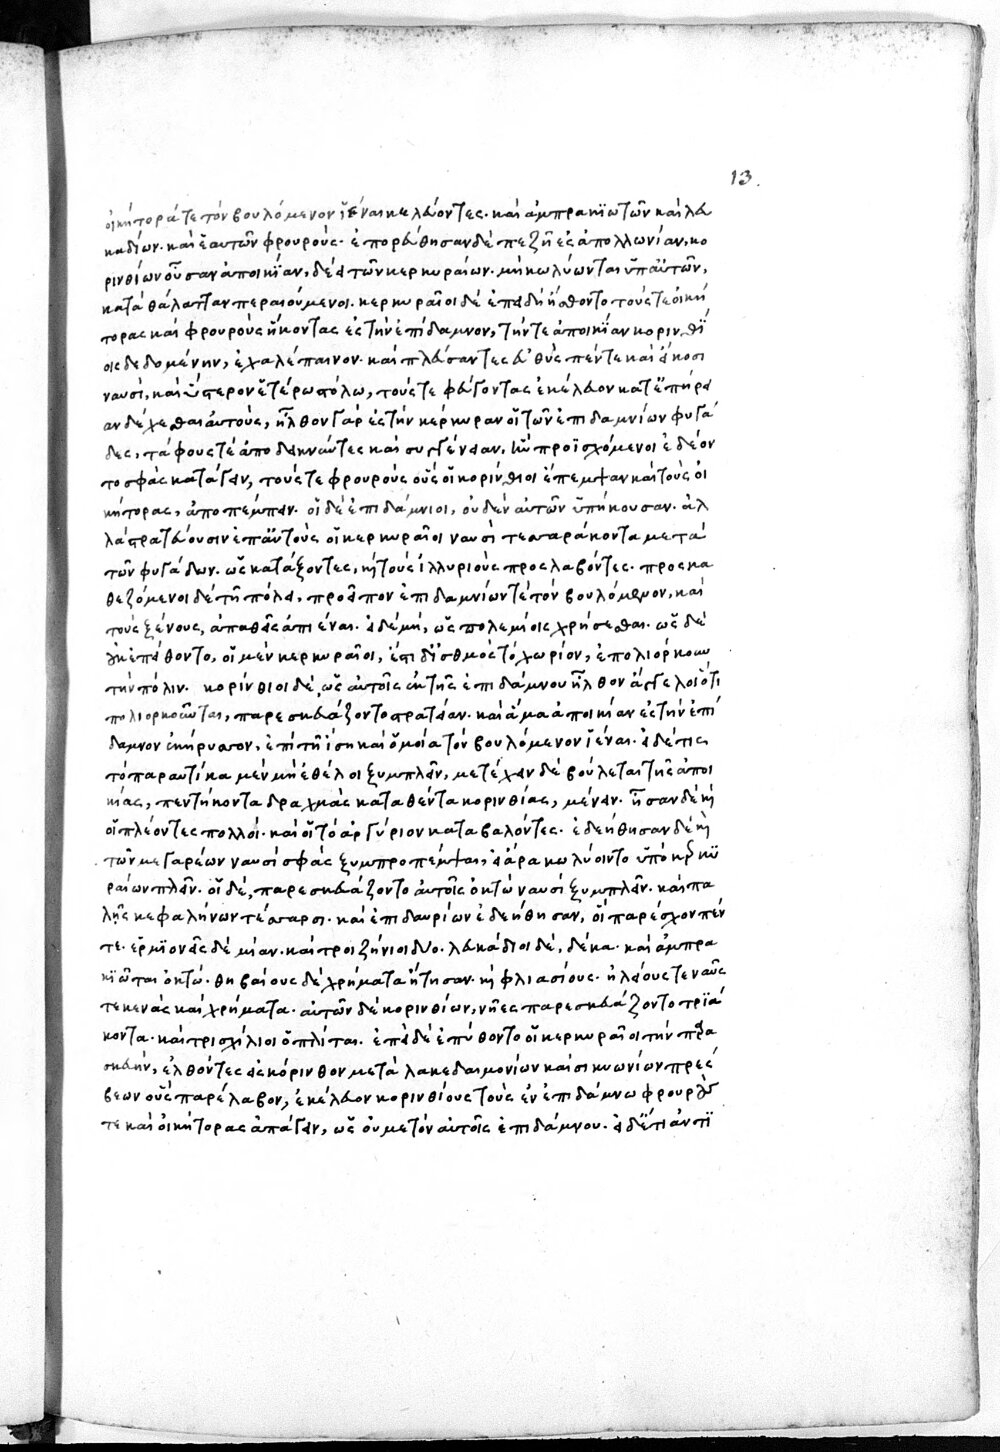 13.
οἰκήτορά τε τὸν βουλόμενον ἰέναι κελεύοντες· καὶ ἀμπρακιωτῶν καὶ λευ
καδίων· καὶ ἑαυτῶν φρουρούς· ἐπορεύθησαν δὲ πεζῆ ἐς ἀπολλωνίαν, κο
ρινθίων οὖσαν ἀποικίαν, δέει τῶν κερκυραίων· μὴ κωλύωνται ὑπ' αὐτῶν,
κατὰ θάλατταν περαιούμενοι. κερκυραῖοι δὲ ἐπειδὴ ἤσθοντο τούς τε οἰκή
τορας καὶ φρουροὺς ἥκοντας ἐς τὴν ἐπίδαμνον, τήν τε ἀποικίαν κορινθί
οις δεδομένην, ἐχαλέπαινον· καὶ πλεύσαντες εὐθὺς πέντε καὶ εἴκοσι
ναυσὶ, καὶ ὕστερον ἑτέρω στόλω, τούς τε φεύγοντας ἐκέλευον κατ' ἐπήρει
αν δέχεσθαι αὐτούς, ἦλθον γὰρ ἐς τὴν κέρκυραν οἱ τῶν ἐπιδαμνίων φυγά
δες, τάφους τὲ ἀποδεικνύντες καὶ συγγένειαν, ἣν προϊσχόμενοι ἐδέον
το σφᾶς κατάγειν, τούς τε φρουροὺς οὓς οἱ κορίνθιοι ἔπεμψαν καὶ τοὺς οἰ
κήτορας, ἀποπέμπειν. οἱ δὲ ἐπιδάμνιοι, οὐδὲν αὐτῶν ὑπήκουσαν. ἀλ
λὰ στρατεύουσιν ἐπ' αὐτοὺς οἱ κερκυραῖοι ναυσὶ τεσσαράκοντα μετὰ
τῶν φυγάδων· ὡς κατάξοντες, καὶ τοὺς ἰλλυριοὺς προσλαβόντες· προσκα
θεζόμενοι δὲ τῆ πόλει, προεῖπον ἐπιδαμνίων τὲ τὸν βουλόμενον, καὶ
τοὺς ξένους, ἀπαθεῖς ἀπιέναι· εἰ δὲ μή, ὡς πολεμίοις χρήσεσθαι· ὡς δὲ
οὐκ ἐπείθοντο, οἱ μὲν κερκυραῖοι, ἔστι δ' ἰσθμὸς τὸ χωρίον, ἐπολιόρκουν
τὴν πόλιν. κορίνθιοι δὲ, ὡς αὐτοῖς ἐκ τῆς ἐπιδάμνου ἦλθον ἄγγελοι ὅτι
πολιορκοῦνται, παρεσκευάζοντο στρατείαν· καὶ ἅμα ἀποικίαν ἐς τὴν ἐπί
δαμνον ἐκήρυσσον, ἐπὶ τῆ ἴση καὶ ὁμοία τὸν βουλόμενον ἰέναι· εἰ δέ τις
τὸ παραυτίκα μὲν μὴ ἐθέλοι ξυμπλεῖν, μετέχειν δὲ βούλεται τῆς ἀποι
κίας, πεντήκοντα δραχμὰς καταθέντα κορινθίας, μένειν· ἦσαν δὲ καὶ
οἱ πλέοντες πολλοὶ· καὶ οἱ τὸ ἀργύριον καταβαλόντες· ἐδεήθησαν δὲ καὶ
τῶν μεγαρέων ναυσὶ σφᾶς ξυμπροπέμψαι, εἰ ἄρα κωλύοιντο ὑπὸ κερκυ
ραίων πλεῖν· οἱ δὲ, παρεσκευάζοντο αὐτοῖς ὀκτὼ ναυσὶ ξυμπλεῖν· καὶ πα
λῆς κεφαλήνων τέσσαρσι· καὶ ἐπιδαυρίων ἐδεήθησαν, οἳ παρέσχον πέν
τε· ἑρμιονεῖς δὲ μίαν· καὶ τροιζήνιοι δύο· λευκάδιοι δὲ, δέκα· καὶ ἀμπρα
κιῶται ὀκτώ· θηβαίους δὲ χρήματα ἤτησαν· καὶ φλιασίους· ἠλείους τε ναῦς
τε κενὰς καὶ χρήματα· αὐτῶν δὲ κορινθίων, νῆες παρεσκευάζοντο τριά
κοντα· καὶ τρισχίλιοι ὁπλίται· ἐπεὶ δὲ ἐπύθοντο οἱ κερκυραῖοι τὴν παρα
σκευήν, ἐλθόντες εἰς κόρινθον μετὰ λακεδαιμονίων καὶ σικυωνίων πρέσ
βεων οὓς παρέλαβον, ἐκέλευον κορινθίους τοὺς ἐν ἐπιδάμνω φρουρούς
τε καὶ οἰκήτορας ἀπάγειν, ὡς οὐ μετὸν αὐτοῖς ἐπιδάμνου· εἰ δέ τι ἀντι